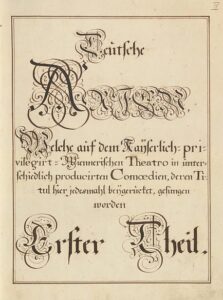 Teütsche
ARIEN
Welche auf dem Kaÿserlich-pri-
vilegirt-Wiennerischen Theatro in unter-
schiedlich producirten Comœdien, deren Ti-
tul hier jedesmahl beÿgerücket, gesungen
worden
Erster Theil.